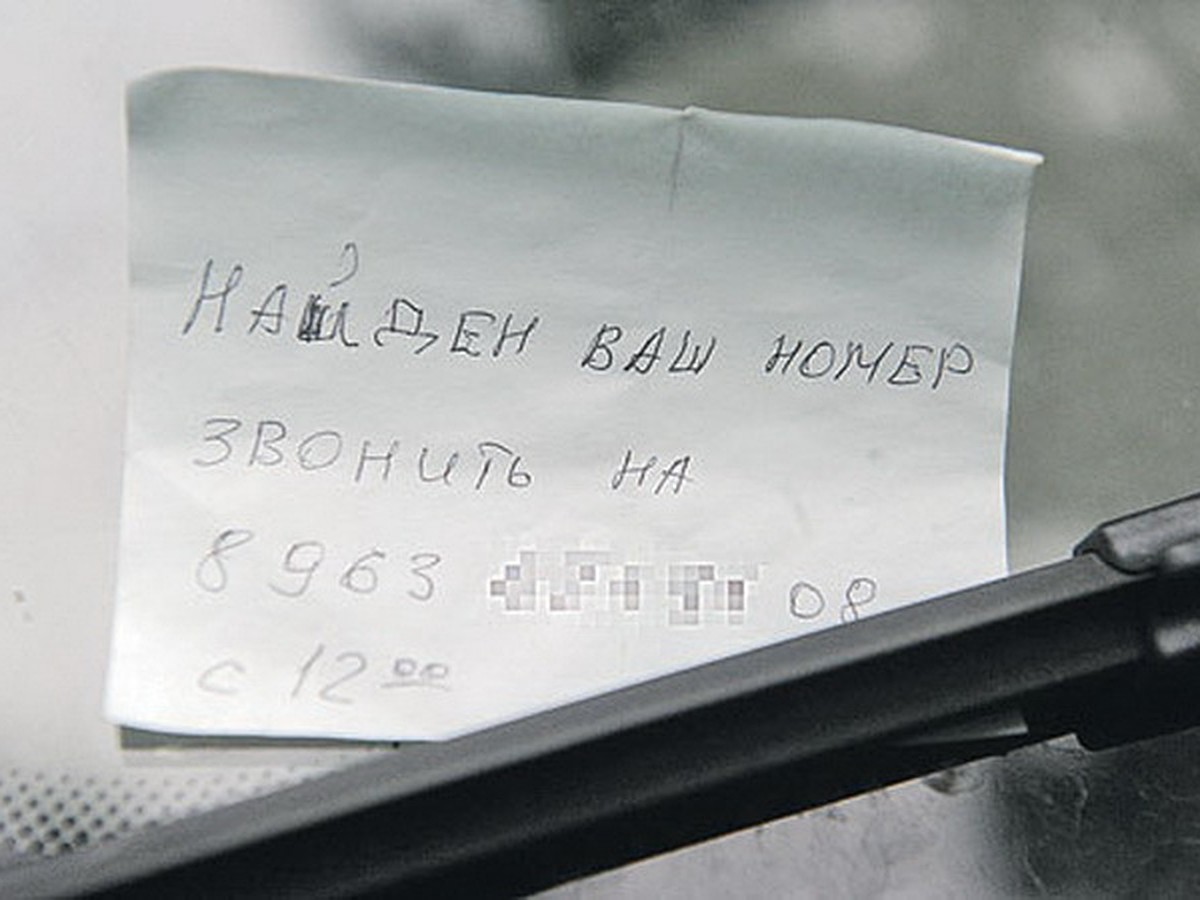 НАЙДЕН ВАШ НОМЕР
ЗВОНИТЬ НА
8 963 08
С 12 00